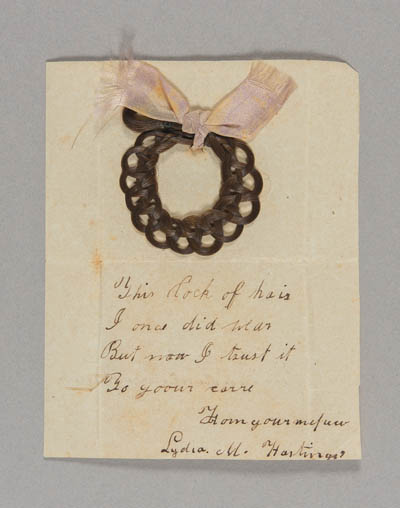 This Lock of hair
I once did wear
But now I trust it
To yoour carre
From your
Lydia. M. Hastings